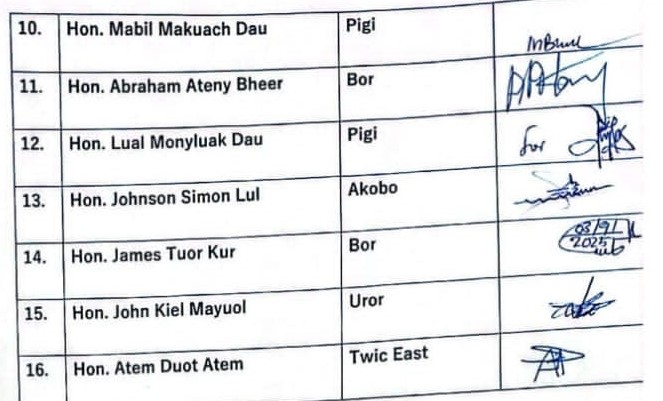 10. Hon. Mabil Makuach Dau Pigi
11. Hon. Abraham Ateny Bheer Bor
12. Hon. Lual Monyluak Dau Pigi for
13. Hon. Johnson Simon Lul Akobo
14. Hon. James Tuor Kur Bor 03/9/
2025
15. Hon. John Kiel Mayuol Uror
16. Hon. Atem Duot Atem Twic East